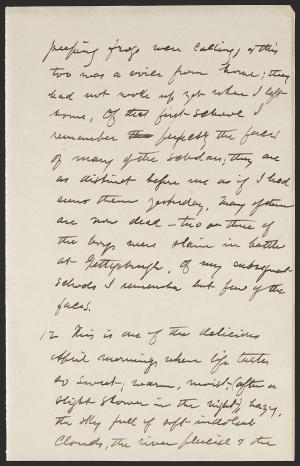 peeping frogs were calling, & this
too was a voice from home; they
had not woke up yet when I left
home. Of that first school I
remember perfectly the faces
of many of the scholars; they are
as distinct before me as if I had
seen them yesterday. Many of them
are now dead – two or three of
the boys were slain in battle
at Gettysburgh. Of my subsequent
schools I remember but few of the
faces.
12 This is one of the delicious
April mornings when life tastes
so sweet; warm, moist; after a
slight shower in the night; hazy,
the sky full of soft indolent
clouds, the river placid & the